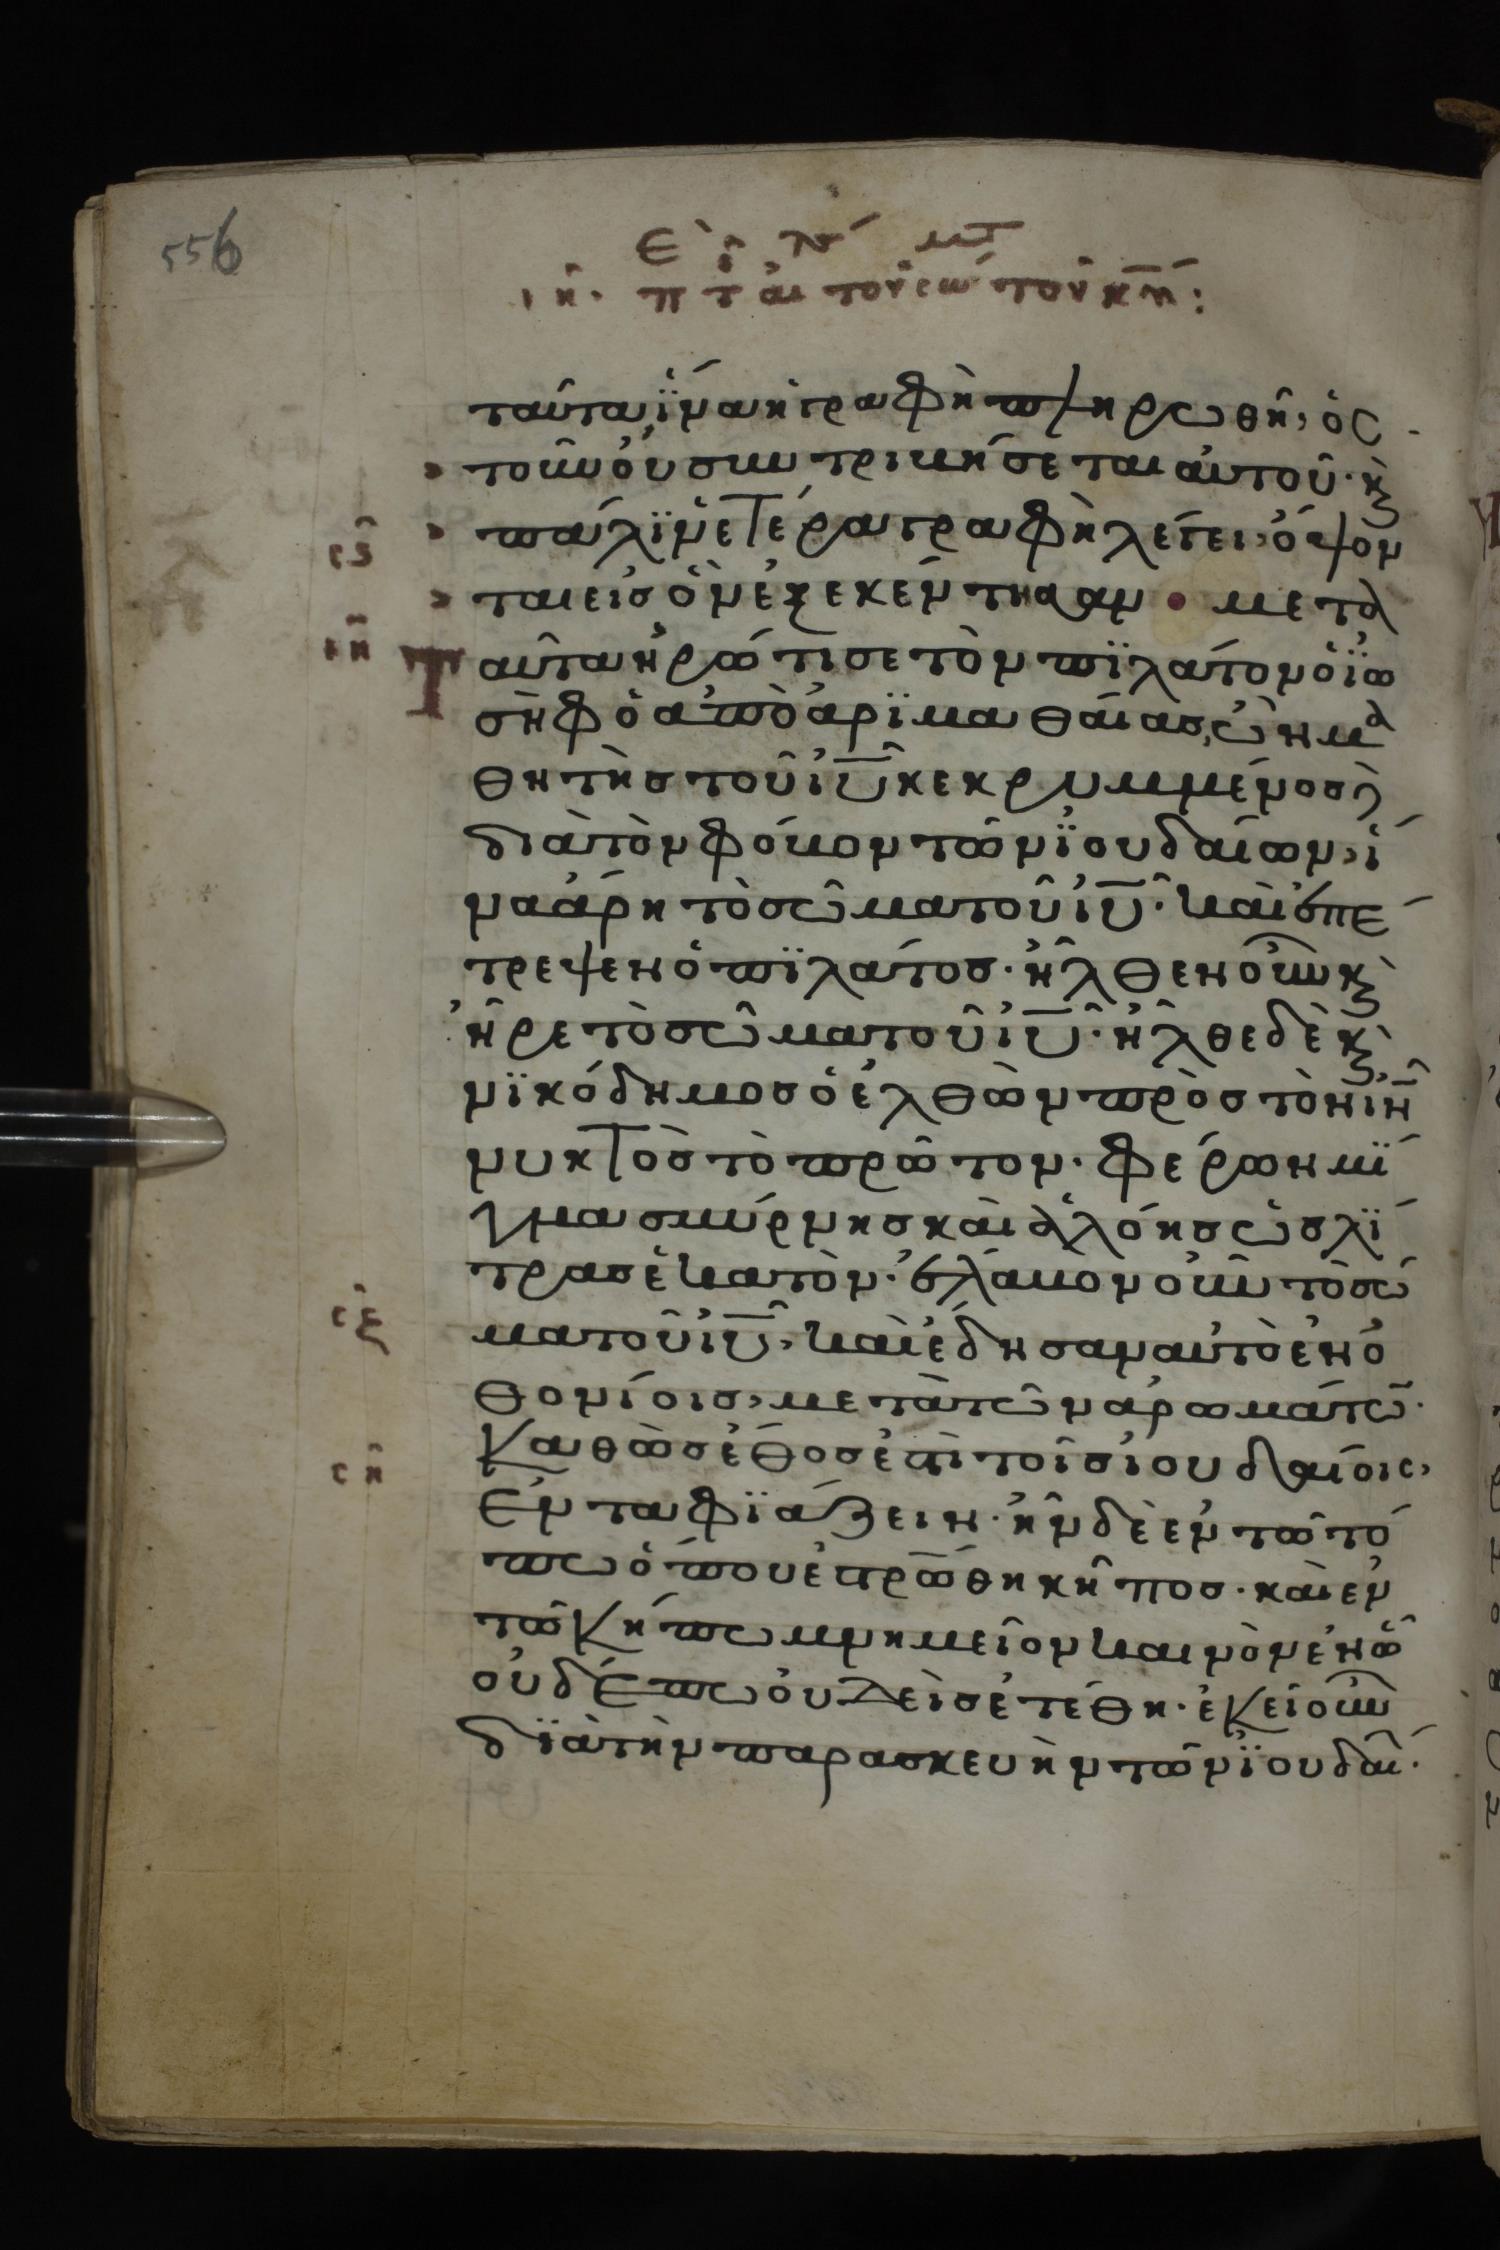 556
ιη. π τ αι τοῦ σω τοῦ κῦ:
ταῦτα ἵνα ἡ γραφὴ πληρωθῆ, ὀς
τοῦν οὐ συντριβήσεται αὐτοῦ. κ
πάλϊν ἑτέρα γραφὴ λέγει, ὄψον
ται εἰσ ὃν ἐξεκέντησαν. μετα
ταῦτα ἠρώτισε τὸν πϊλάτον ὁ ϊω
σὴφ ὁ ἀπὸ ἀρϊμαθαίασ, ὢν μα
θητὴσ τοῦ ἰῦ κεκρυμμένοσ
διὰ τὸν φόβον τῶν ϊουδαίων, ἵ
να ἄρη τὸ σῶμα τοῦ ἰῦ. καὶ ἐπέ
τρεψεν ὁ πϊλάτοσ. ἦλθεν οὖν κ
ἦρε τὸ σῶμα τοῦ ἰῦ. ἦλθε δὲ κ
νϊκόδημοσ ὁ ἐλθὼν πρὸσ τὸν ἰν
νυκτὸσ τὸ πρῶτον. φέρων μΐ
γμα σμύρνησ καὶ ἀλόησ ὡσ λΐ
τρασ ἑκατὸν. ἔλαβον οὖν τὸ σῶ
μα τοῦ ἰῦ, καὶ ἔδησαν αὐτὸ ἐν ὀ
θονίοισ, μετὰ τῶν ἀρωμάτω.
καθὼσ ἔθοσ ἐστὶ τοῖσ ἰουδαίοις,
ἐνταφϊάζειν. ἦν δὲ ἐν τῶ τό
πω ὅπου ἐστρώθη κῆποσ. καὶ ἐν
τῶ κήπω μνημεῖον καινὸν ἐν ᾧ
οὐδέπω οὐδεὶσ ἐτέθη. ἐκεῖ οὖν
δϊὰ τὴν παρασκευὴν τῶν ϊουδαί.